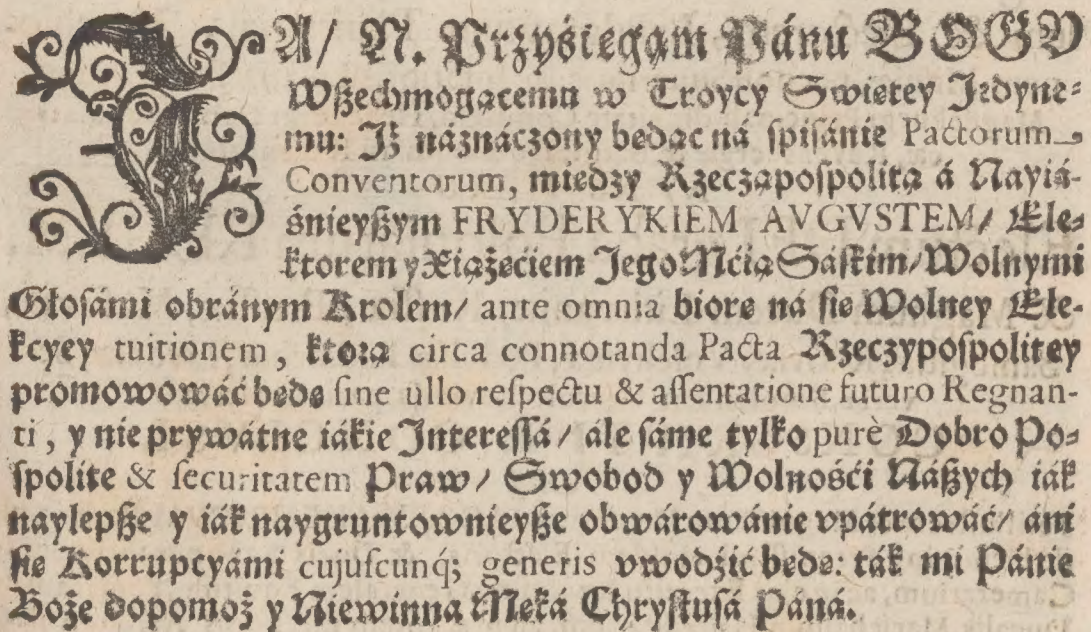 JA/ N. Przyśięgąm Pánu BOGV
Wßechmogącemu w Troycy Swiętey Jedyne⸗
mu: Jż náznáczony będąc ná ſpiſánie Pactorum
Conventorum, między Rzecząpoſpolitą á Nayiá-
śnieyßym FRYDERYKIEM AVGVSTEM/ Ele⸗
ktorem y Xiążęćiem Jego Mćią Sáſkim/ Wolnymi
Głoſámi obránym Krolem/ ante omnia biorę ná ſię Wolney Ele⸗
kcyey tuitionem, ktorą circa connotanda Pacta Rzeczypoſpolitey
promowowáć będę ſine ullo reſpectu & aſſentatione futuro Regnan-
ti, y nie prywátne iákie Intereſſá/ ále ſáme tylko purè Dobro Po⸗
ſpolite & ſecuritatem Praw/ Swobod y Wolnośći Náßych iák
naylepße y iák naygruntownieyße obwárowánie vpátrowáć/ áni
ſię Korrupcyámi cujuſcunq; generis vwodźić będę: ták mi Pánie
Boże dopomoż y Niewinna Męká Chryſtuſá Páná.